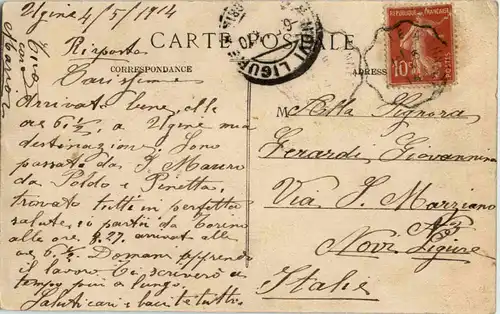 Ugine 4/5/1914
Risposta
CARTE POSTALE
CORRESPONDANCE
ADRESSE
REPUBLIQUE FRANÇAISE
10
POSTES
NOVI LIGURE
Carissima
Arrivato bene, alle
ore 6½, a Ugine mia
destinazione. Sono
passato da S. Mauro
da Poldo e Pinetta,
trovato tutti in perfetta
salute, io partii da Torino
alle ore 8.27. arrivai alle
ore 6½. Domani apprendo
il lavoro. Ci scriverò a
tempo più a lungo.
Saluti cari e baci te tutti
M Alla Signora
Ferardi Giovannina
Via S. Marziano
Novi Ligure
Italie